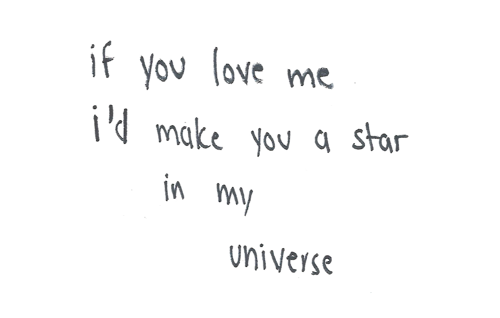 if you love me
i'd make you a star
in my
universe